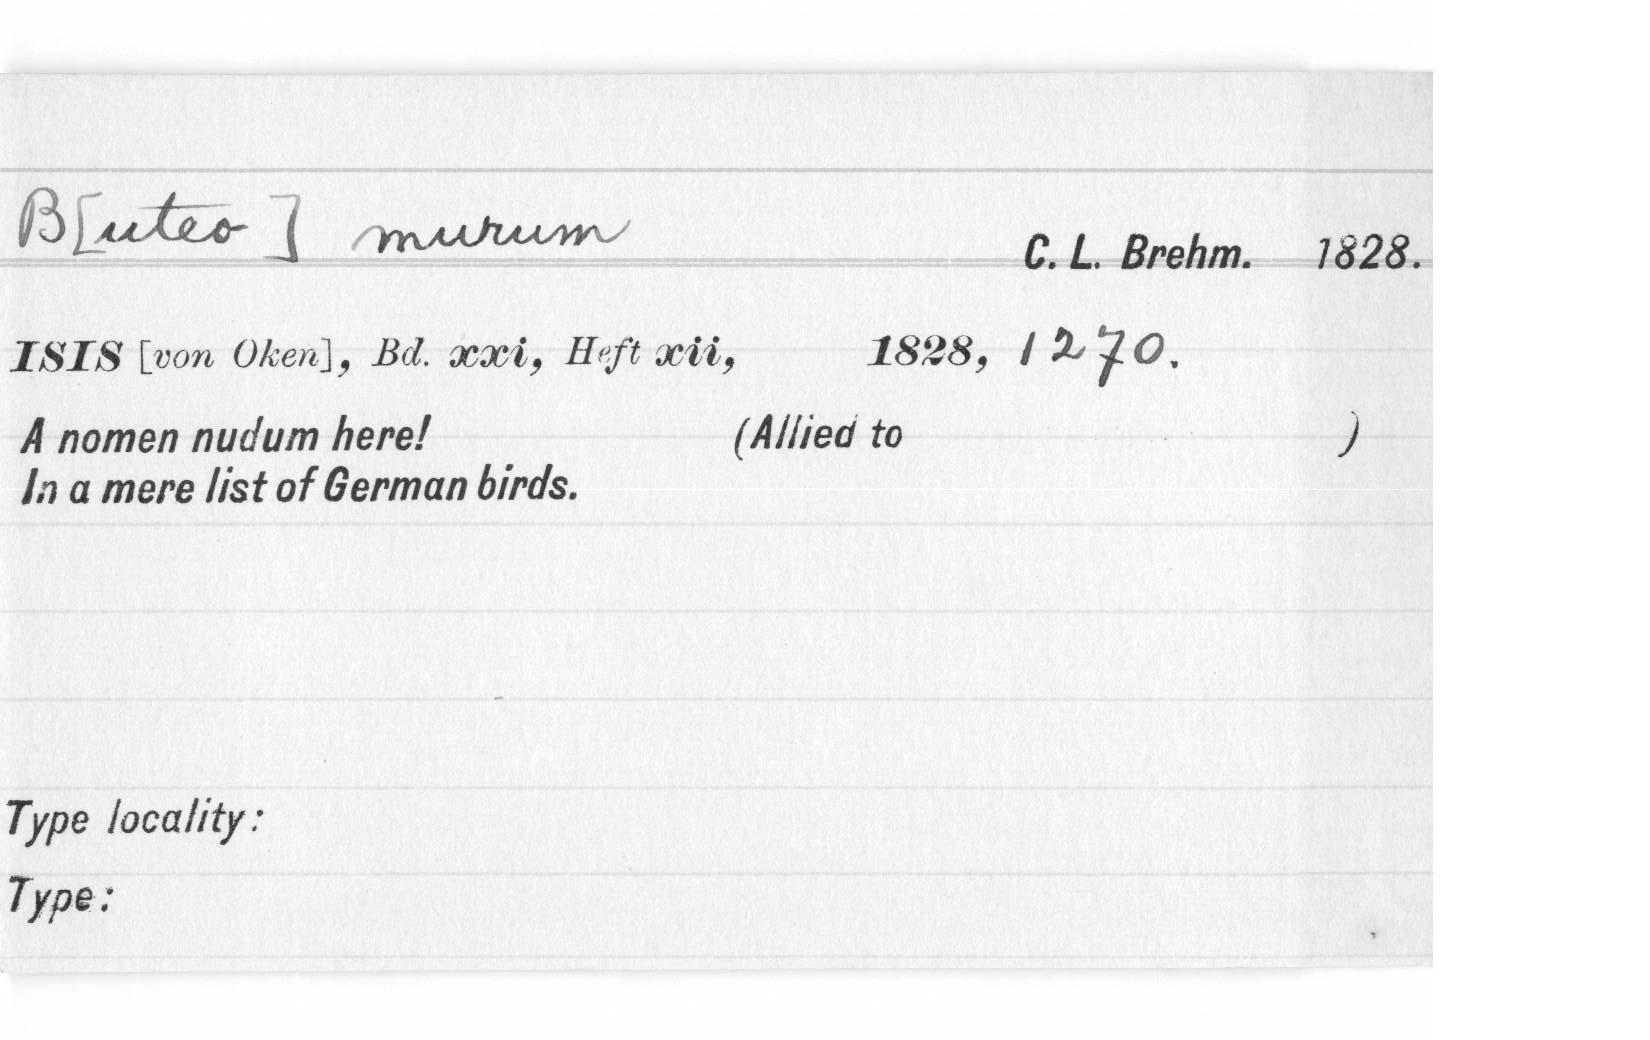 B[uteo] murum
C. L. Brehm. 1828.
ISIS [von Oken], Bd. xxi, Heft xii, 1828, 1270.
A nomen nudum here! (Allied to )
In a mere list of German birds.
Type locality:
Type: